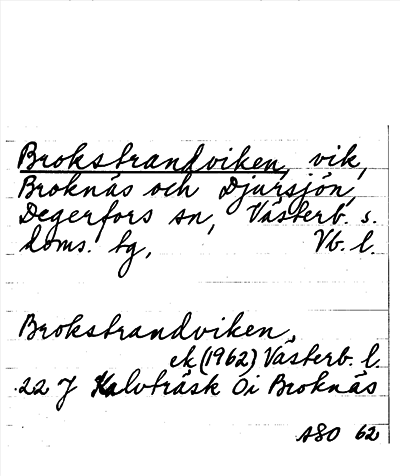 Brokstrandviken, vik,
Broknäs och Djursjön,
Degerfors sn, Västerb. s.
doms. tg, Vb. l.
Brokstrandviken,
ek (1962) Västerb. l.
22 J Kalvträsk Öi Broknäs
ASO 62